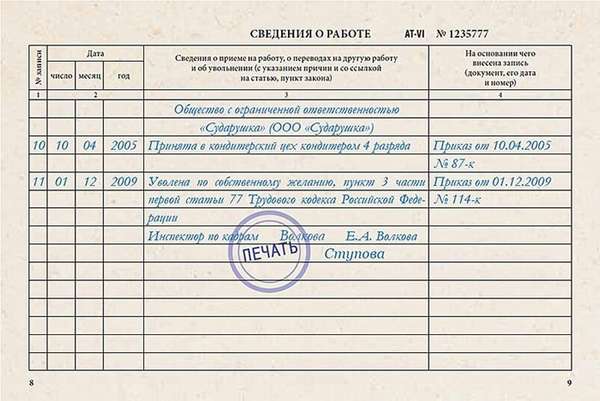 СВЕДЕНИЯ О РАБОТЕ AT-VI № 1235777
№ записи
Дата
Сведения о приеме на работу, о переводах на другую работу
и об увольнении (с указанием причины и со ссылкой
на статью, пункт закона)
На основании чего
внесена запись
(документ, его дата
и номер)
число месяц год
1 2 3 4
Общество с ограниченной ответственностью
«Сударушка» (ООО «Сударушка»)
10 10 04 2005 Принята в кондитерский цех кондитером 4 разряда Приказ от 10.04.2005
№ 87-к
11 01 12 2009 Уволена по собственному желанию, пункт 3 части Приказ от 01.12.2009
первой статьи 77 Трудового кодекса Российской Феде- № 114-к
рации
Инспектор по кадрам Волкова Е.А. Волкова
ПЕЧАТЬ Ступова
8 9